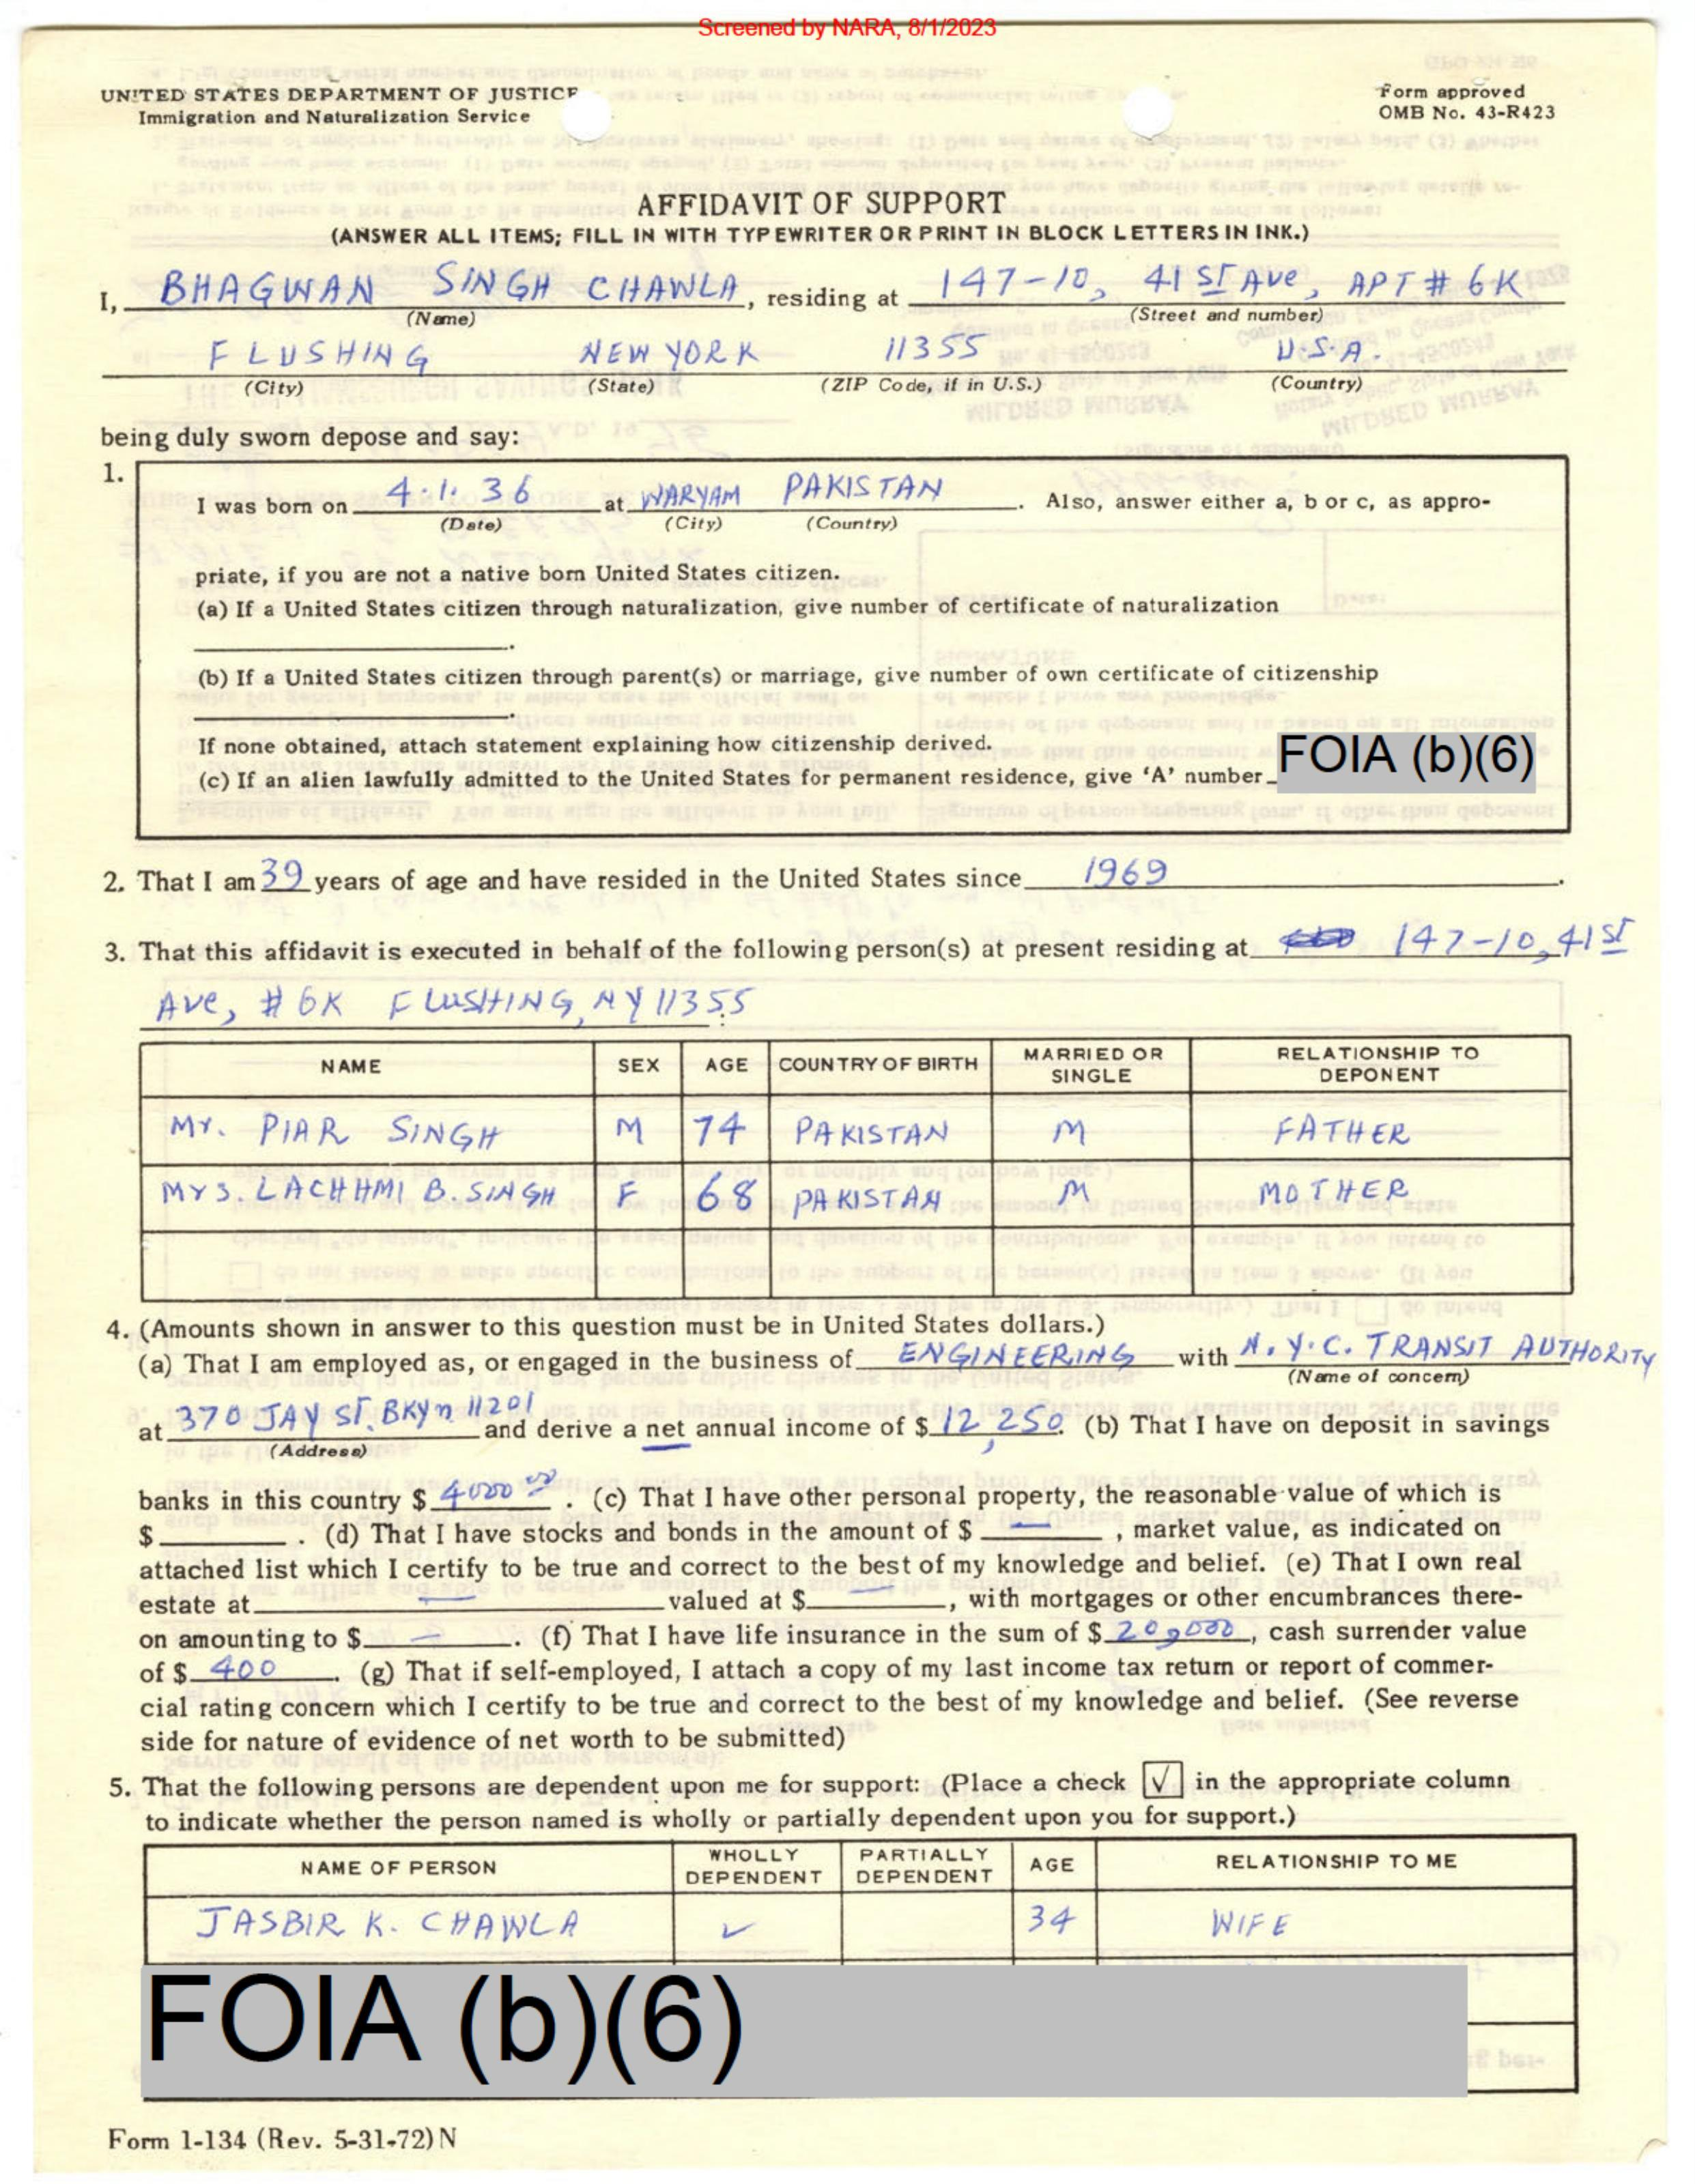 Screened by NARA, 8/1/2023
UNITED STATES DEPARTMENT OF JUSTICE
Immigration and Naturalization Service
Form approved
OMB No. 43-R423
AFFIDAVIT OF SUPPORT
(ANSWER ALL ITEMS; FILL IN WITH TYPEWRITER OR PRINT IN BLOCK LETTERS IN INK.)
I, BHAGWAN SINGH CHAWLA, residing at 147-10, 41ST Ave, APT # 6K
(Name) (Street and number)
FLUSHING NEW YORK 11355 U.S.A.
(City) (State) (ZIP Code, if in U.S.) (Country)
being duly sworn depose and say:
1.
I was born on 4.1.36 at WARYAM PAKISTAN. Also, answer either a, b or c, as appro-
(Date) (City) (Country)
priate, if you are not a native born United States citizen.
(a) If a United States citizen through naturalization, give number of certificate of naturalization
.
(b) If a United States citizen through parent(s) or marriage, give number of own certificate of citizenship
.
If none obtained, attach statement explaining how citizenship derived.
(c) If an alien lawfully admitted to the United States for permanent residence, give 'A' number FOIA (b)(6)
2. That I am 39 years of age and have resided in the United States since 1969.
3. That this affidavit is executed in behalf of the following person(s) at present residing at 147-10, 41ST
Ave, # 6K FLUSHING, NY 11355.
NAME SEX AGE COUNTRY OF BIRTH MARRIED OR SINGLE RELATIONSHIP TO DEPONENT
Mr. PIAR SINGH M 74 PAKISTAN M FATHER
Mrs. LACHHMI B. SINGH F 68 PAKISTAN M MOTHER
4. (Amounts shown in answer to this question must be in United States dollars.)
(a) That I am employed as, or engaged in the business of ENGINEERING with N.Y.C. TRANSIT AUTHORITY
(Name of concern)
at 370 JAY ST. BKyn 11201 and derive a net annual income of $ 12,250. (b) That I have on deposit in savings
(Address)
banks in this country $ 4000 00. (c) That I have other personal property, the reasonable value of which is
$ . (d) That I have stocks and bonds in the amount of $ —, market value, as indicated on
attached list which I certify to be true and correct to the best of my knowledge and belief. (e) That I own real
estate at — valued at $ —, with mortgages or other encumbrances there-
on amounting to $ —. (f) That I have life insurance in the sum of $ 20,000, cash surrender value
of $ 400. (g) That if self-employed, I attach a copy of my last income tax return or report of commer-
cial rating concern which I certify to be true and correct to the best of my knowledge and belief. (See reverse
side for nature of evidence of net worth to be submitted)
5. That the following persons are dependent upon me for support: (Place a check √ in the appropriate column
to indicate whether the person named is wholly or partially dependent upon you for support.)
NAME OF PERSON WHOLLY DEPENDENT PARTIALLY DEPENDENT AGE RELATIONSHIP TO ME
JASBIR K. CHAWLA ✓ 34 WIFE
FOIA (b)(6)
Form 1-134 (Rev. 5-31-72) N